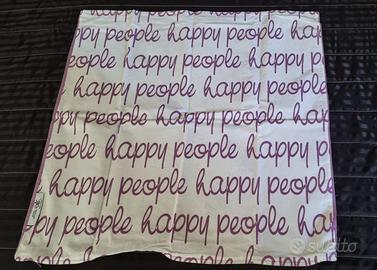 happy people happy people
happy people happy people
happy people happy people
happy people happy people
happy people happy people
people happy people
happy people happy people
ppy people happy people
people happy people
subito